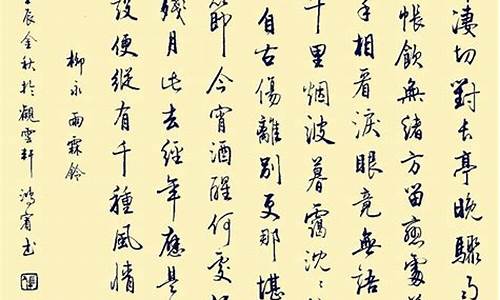 淒切對長亭晚驟雨
帳飲無緒方留戀處
手相看淚眼竟無語
千里烟波暮靄沈沈
自古傷離別更那堪
節今宵酒醒何處
殘月此去經年應是
設便縱有千種風情
柳永雨霖鈴
辰金秋於觀雲軒鴻賓書